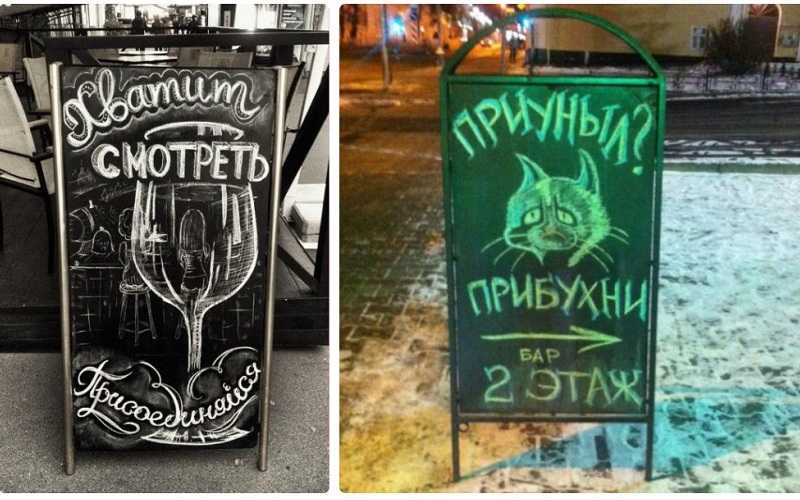 Хватит
СМОТРЕТЬ
Присоединяйся
ПРИУНЫЛ?
ПРИБУХНИ
БАР
2 ЭТАЖ